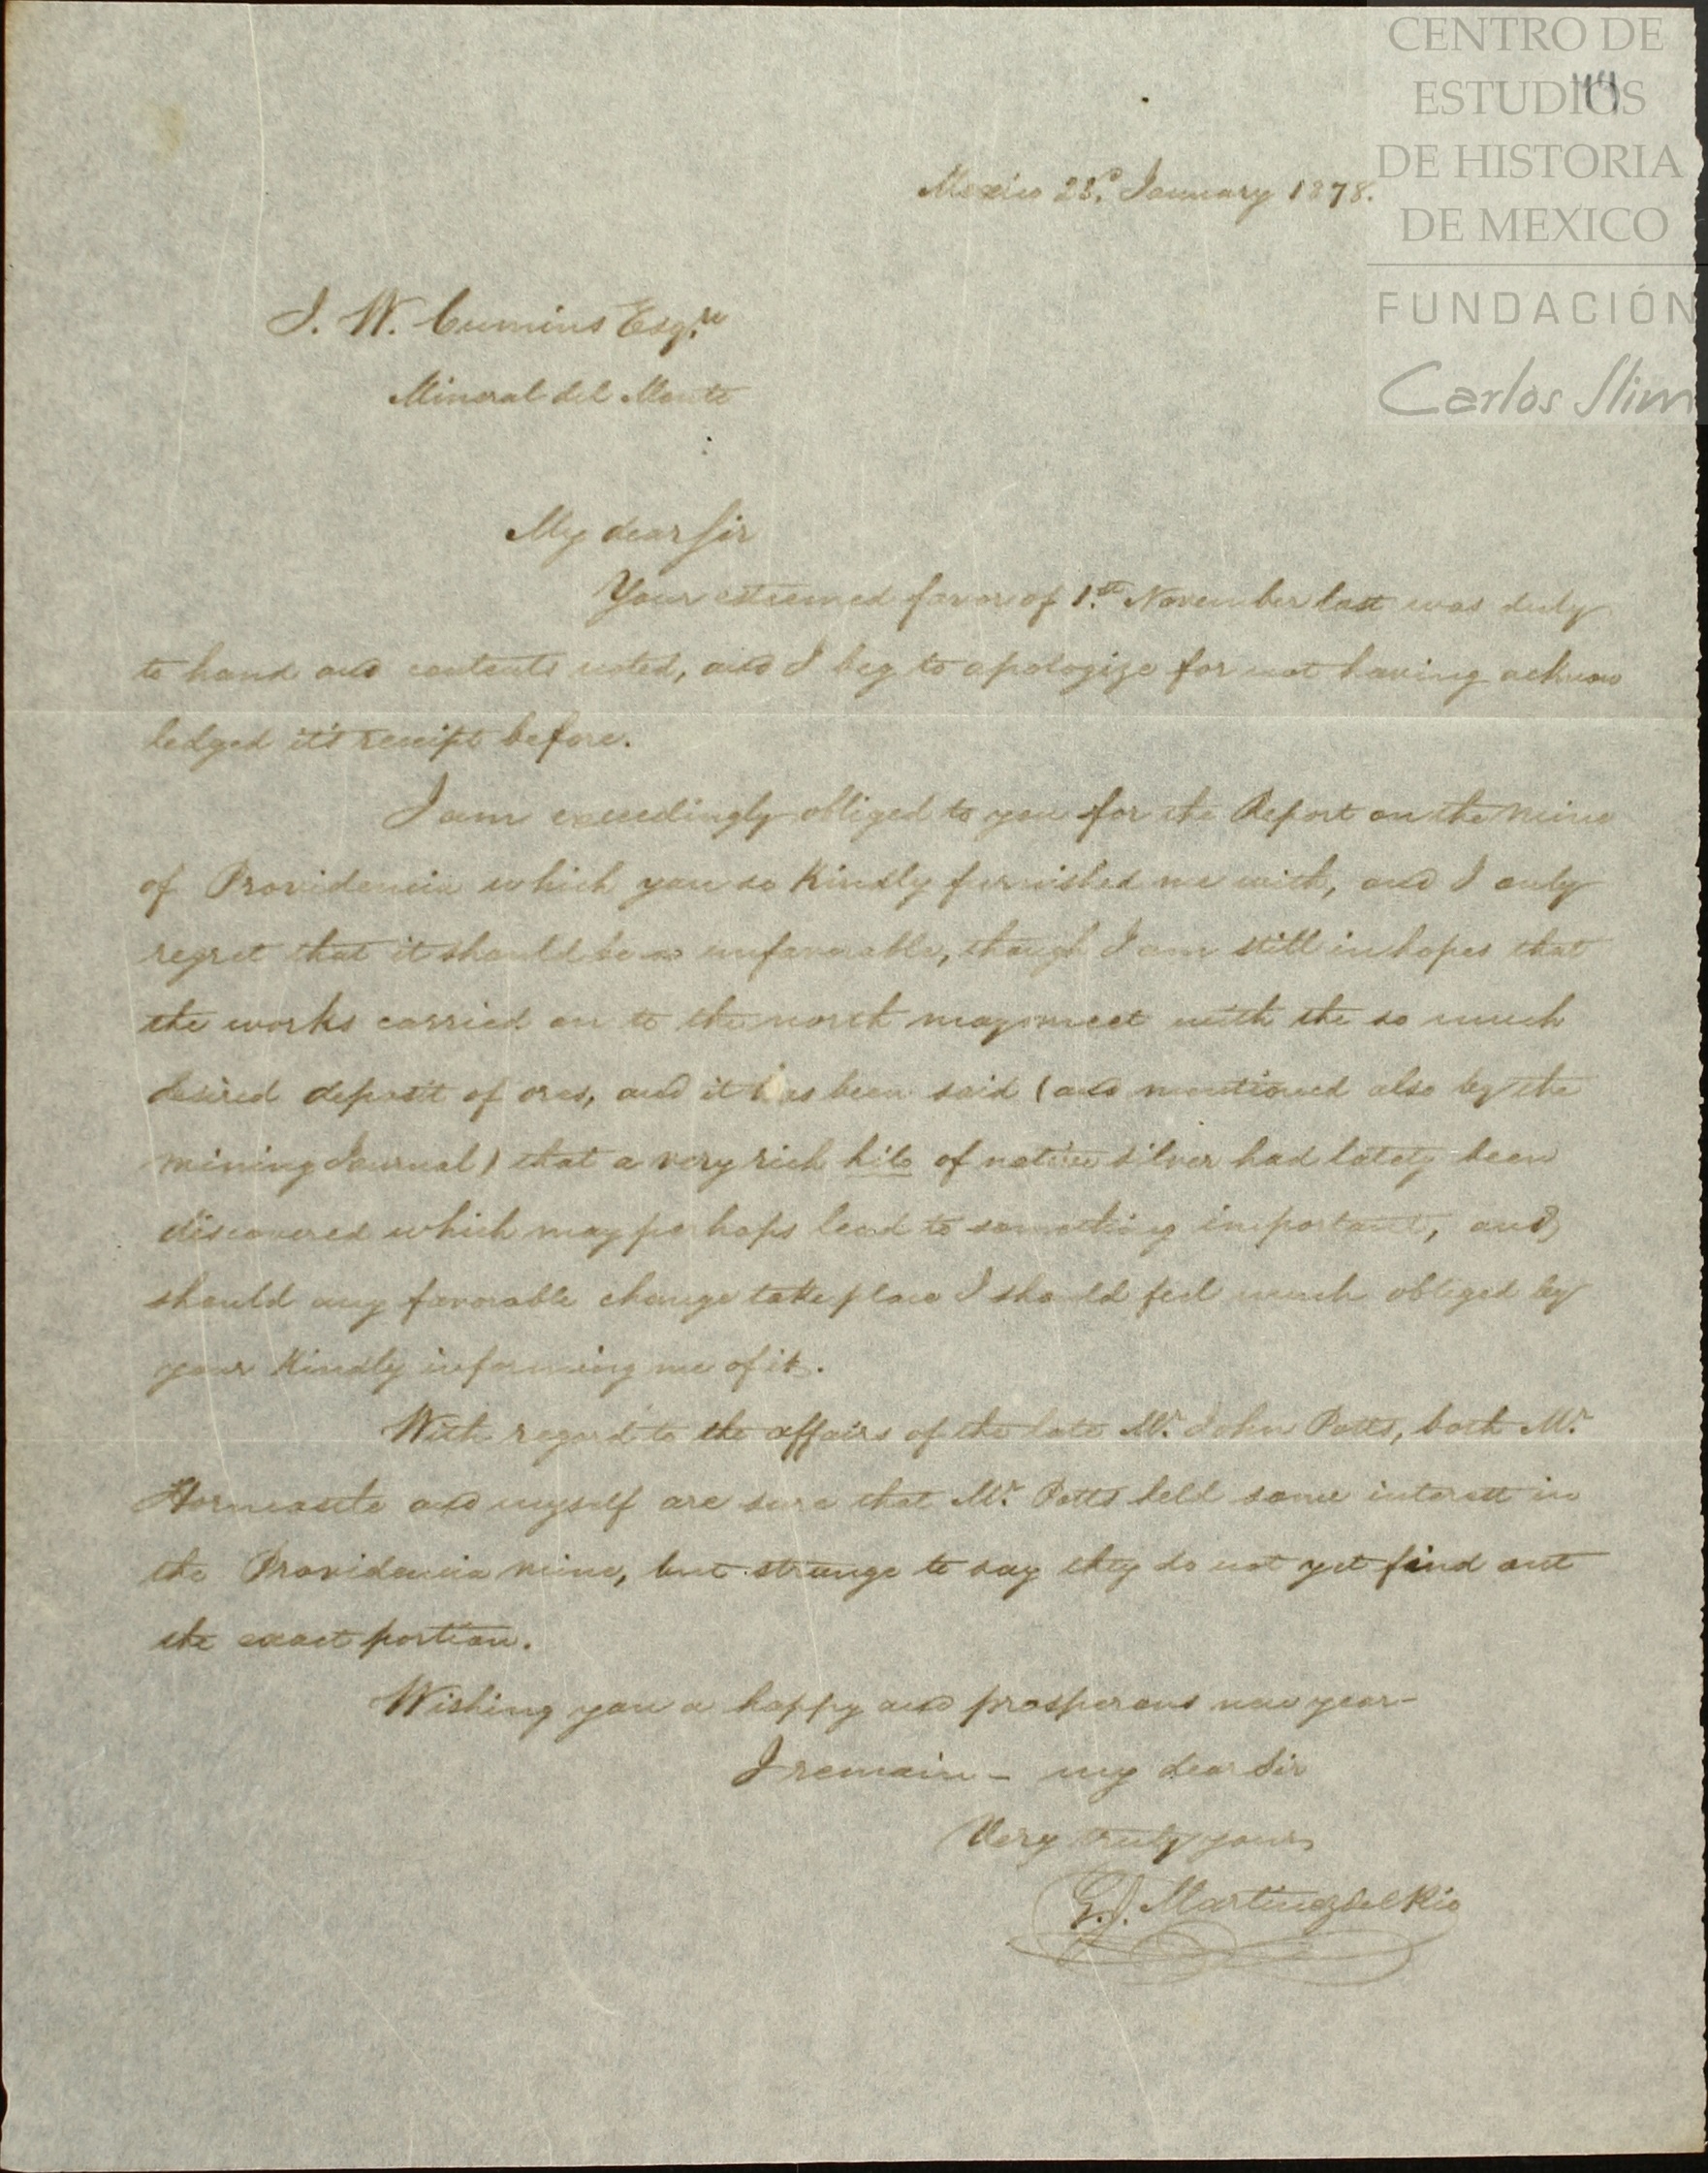 CENTRO DE
ESTUDIOS
DE HISTORIA
DE MEXICO
FUNDACIÓN
Carlos Slim
44
Mexico 22.d January 1878.
J. W. Cumins Esq.re
Mineral del Monte
My dear Sir
Your esteemed favor of 1.st November last was duly
to hand and contents noted, and I beg to apologize for not having acknow
ledged it's receipt before.
I am exceedingly obliged to you for the Report on the mine
of Providencia which you so kindly furnished me with, and I only
regret that it should be so unfavorable, though I am still in hopes that
the works carried on to the north may meet with the so much
desired deposit of ores, and it has been said (and mentioned also by the
mining Journal) that a very rich hilo of native silver had lately been
discovered which may perhaps lead to something important, and
should any favorable change take place I should feel much obliged by
your kindly informing me of it.
With regard to the affairs of the late Mr. John Potts, both Mr.
Horncastle and myself are sure that Mr. Potts held some interest in
the Providencia mine, but strange to say they do not yet find out
the exact portion.
Wishing you a happy and prosperous new year-
I remain - my dear Sir
Very truly yours
G. J. Martinez del Rio